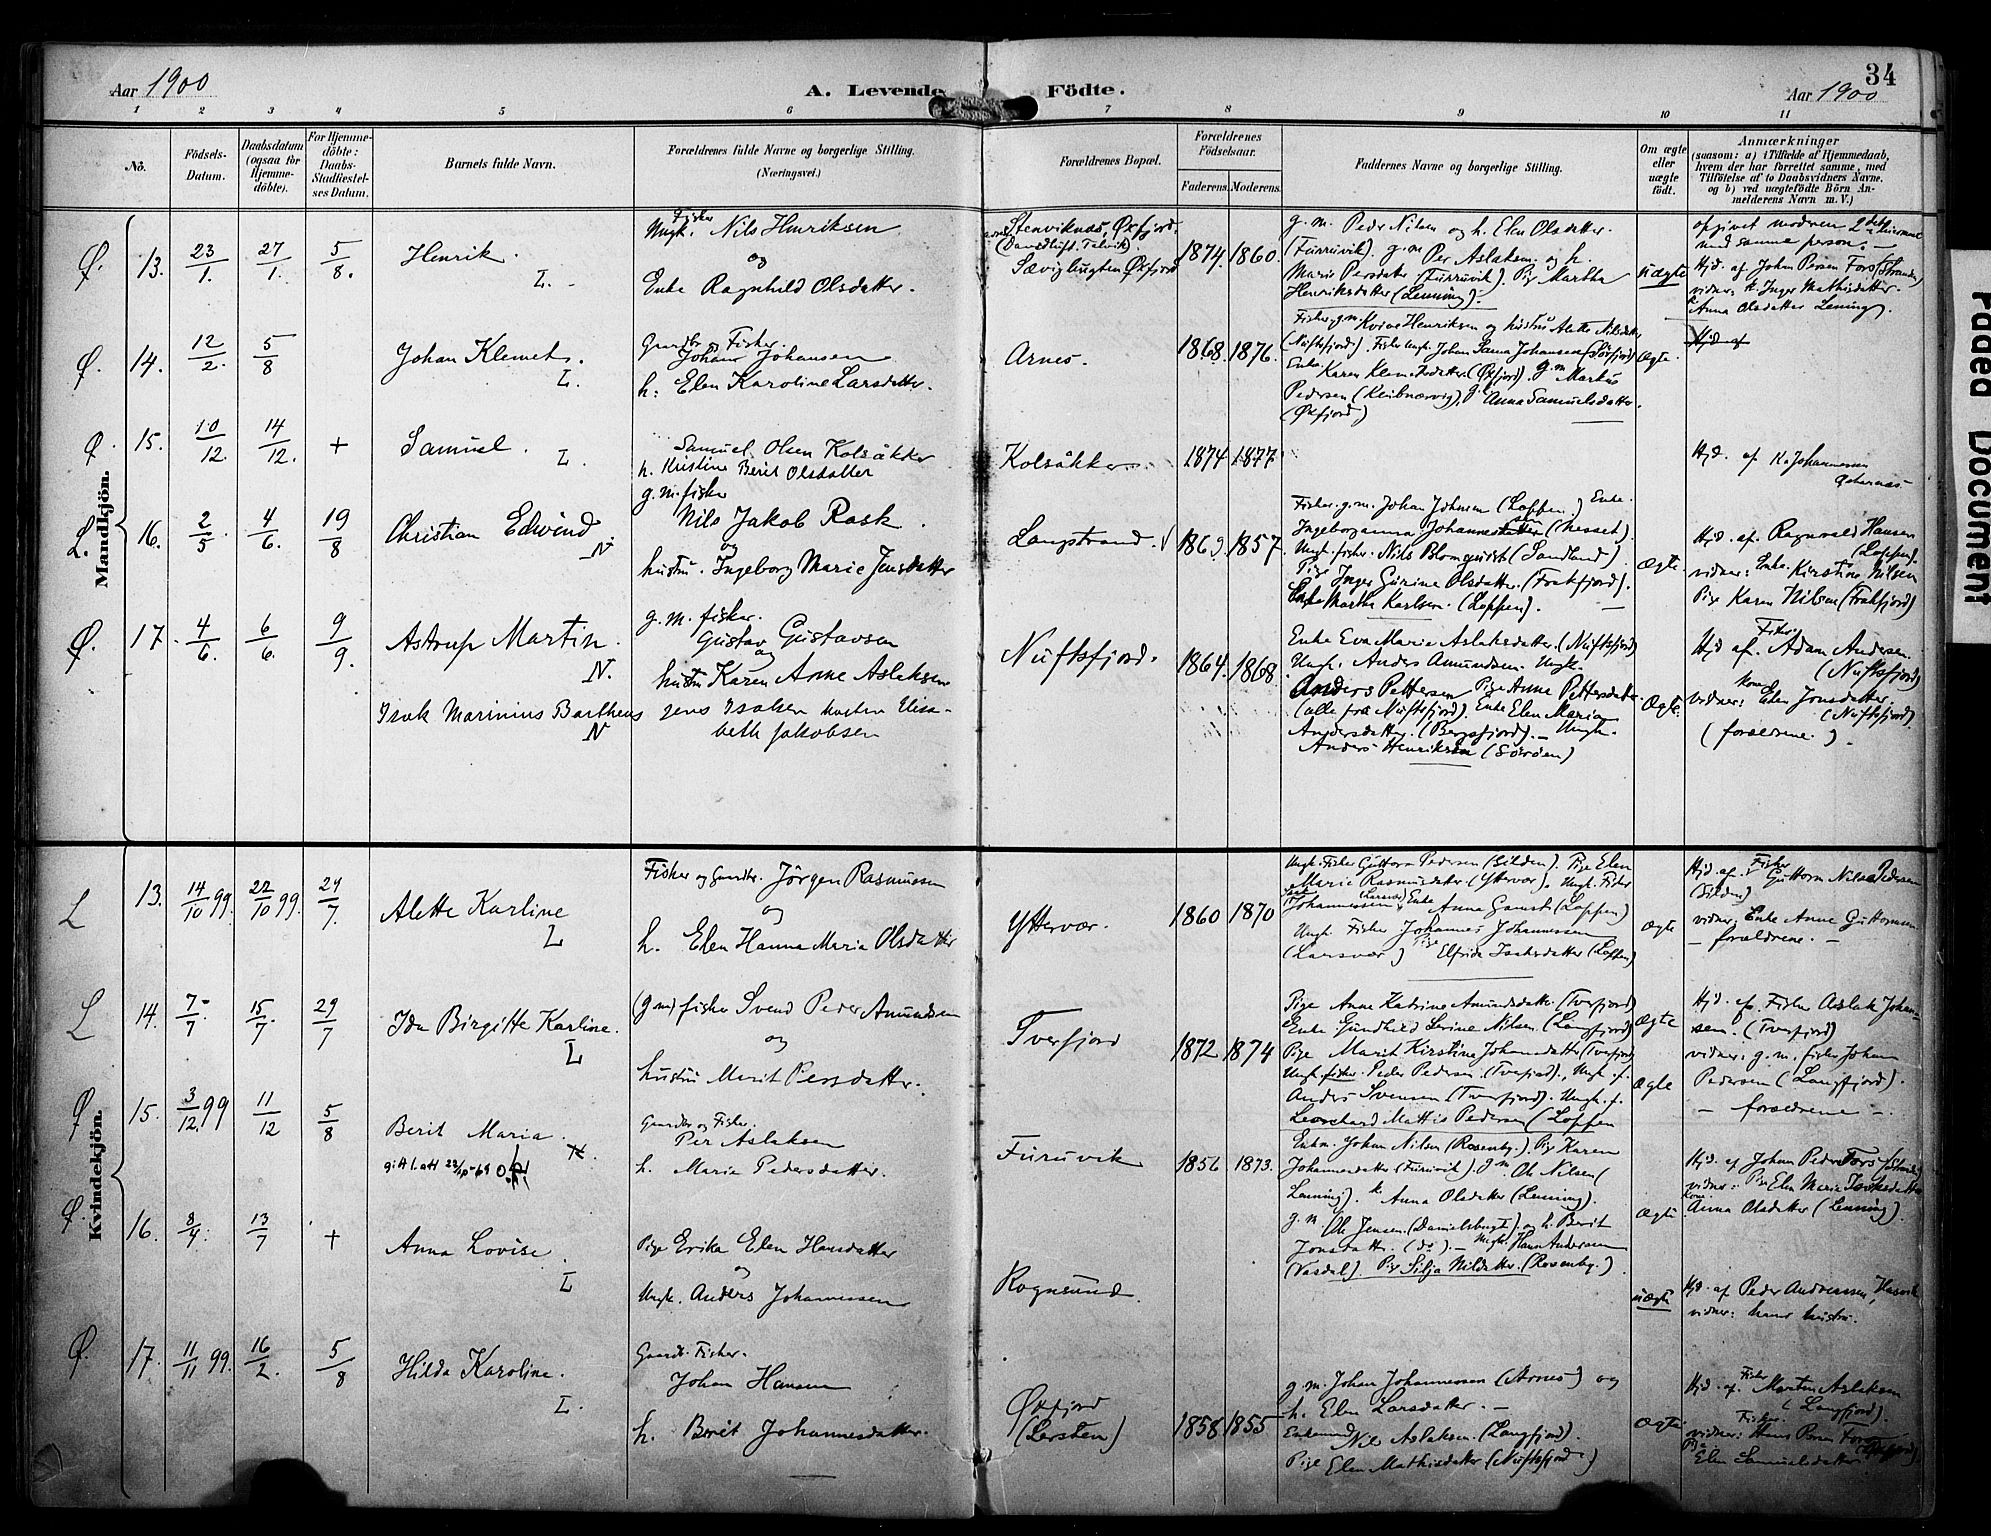 Aar 1900
A. Levende
Födte.
34
Aar 1900
1 2 3 4 5 6 7 8 9 10 11
Nö.
Födsels-Datum.
Daabsdatum (ogsaa for Hjemme-döbte).
For Hjemme-döbte: Daabs-Stadfæstel-ses Datum.
Barnets fulde Navn.
Forældrenes fulde Navne og borgerlige Stilling.
(Næringsvei.)
Forældrenes Bopæl.
Forældrenes Födselsaar.
Faderens. Moderens.
Faddernes Navne og borgerlige Stilling.
Om ægte eller uægte födt.
Anmærkninger
(saasom: a) i Tilfælde af Hjemmedaab,
hvem der har forrettet samme, med
Tilföielse af to Daabsvidners Navne,
og b) ved uægtefödte Börn An-
melderens Navn m. V.)
Mandkjön.
Ø. 13. 23/1. 27/1. 5/8. Henrik. L.
Fisker
Ungk. Nils Henriksen
og
Enke Ragnhild Olsdatter.
Stenviknes, Øxfjord.
1874. 1860.
g. m. Peder Nilsen og h. Elen Olsdatter.
(Furruvik). g. m Per Aslaksen og h.
Marie Persdatter (Furruvik). Pige Martha
Henriksdatter (Lenning).
uægte
med samme person.
Hjd. af John Persen Fors (Stranden)
vidner: k. Inger Mathisdatter.
Anna Olsdatter Lening.
Ø. 14. 12/2. 5/8 Johan Klemet. L.
Gaardbr og Fisker.
Johan Johansen
h: Elen Karoline Larsdatter.
Arnes.
1868. 1876.
Henriksen og hustru Alette Nilsdatter
(Nuftsfjord).
Pedersen
Anna Samuelsdatter
(Øxfjord)
ægte.
Hjd af
Ø. 15. 10/12. 14/12. + Samuel. L.
Samuel Olsen Kolsåkker
h. Kristine Berit Olsdatter
Kolsåkker.
1874 1877
Hjd. af K. Johannesen
L. 16. 2/5 4/6. 19/8 Christian Edwind. N.
g. m. fisker
Nils Jakob Rask.
og
hustru. Ingeborg Marie Jensdatter
Langstrand.
1869. 1857.
Fisker. g. m. Johan Johnsen (Loppen.) Enke.
Ingeborganna Johannesdatter (Nesset).
Ungk. fisker. Nils Blomquist (Sandland)
Pige Inger Gurine Olsdatter. (Frakfjord).
Enke Martha Karlsen. (Loppen).
ægte.
Hjd. af. Ragnvald Hansen
(Loppen).
vidner: Enke. Kirstine Nilsen
Pige Karen Nilsen (Frakfjord)
Ø. 17. 4/6. 6/6. 9/9. Astrup Martin. N.
g. m. fisker.
Gustav Gustavsen
og
hustru Karen Anne Aslaksen
Nuftsfjord.
1864. 1868.
Enke Eva Marie Aslaksdatter. (Nuftsfjord)
Ungk. Anders Amundsen. Ungk.
Anders Pettersen Pige Anne Pettersdatter
(alle fra Nuftsfjord). Enke Elen Maria
Andersdatter. (Bergsfjord). - Ungk.
Anders Henriksen (Söröen)
Ægte.
Fisker
Hjd af. Adam Andersen.
(Nuftsfjord)
Kone
vidner: Elen Jonsdatter.
(Nuftsfjord).
(forældrene.)
Isak Marinius Bartheus N
Jens Isaksen hustru Elisa-
beth Jakobsen
Kvindekjön.
L 13. 14/10 99. 22/10 99. 24/7. Alette Karline L
Fisker og Gaardbr. Jörgen Rasmussen
og
h. Elen Hanna Maria Olsdatter
Yttervær.
1860 1870
Ungk. Fisker Guttorm Pedersen (Silden). Pige Elen
Marie Rasmusdatter (Yttervær). Ungk. Fisker
Johannessen Enke Anna Gamst (Loppen)
Ungk Fisker Johannes Johannessen
(Larsvær) Pige Elfrida Isaksdatter (Loppen)
ægte
Hjd. af. Fisker Guttorm Nils Pedersen
(Silden)
vidner, Enke Anne Guttormsen
- forældrene. -
L 14. 7/7. 15/7. 29/7 Ida Birgitte Karline. L
(g. m) fisker Svend Peder Amundsen
og
hustru Marit Persdatter.
Tverfjord
1872 1874
Pige Anne Katrine Amundsdatter. (Tverfjord)
Enke Gundhild Serine Nilsen. (Langfjord)
Pige Marit Kirstine Johansdatter (Tverfjord)
Ungk. fisker. Peder Pedersen. (Tverfjord)., Ungk. f.
Anders Svensen (Tverfjord). Ungk. f.
Leonhard Mathis Pedersen (Loppen
ægte
Hjd. af Fisker Aslak Johan-
sen. (Tverfjord)
vidner: g. m. fisker Johan
Pedersen (Langfjord).
- forældrene -
Ø 15. 3/12. 99 11/12 5/8 Berit Maria. N.
Gaardbr og Fisker.
Per Aslaksen
h. Maria Pedersdatter.
Furuvik
1856 1873.
ægte
Enkm. Johan Nilsen (Rosenby.). Pige Karen
Johannesdatter (Furuvik). g m. Ole Nilsen (
Lenning). k. Anna Olsdatter (Lenning).
Hjd. af Johan Peder Fors
vidner: Pige Elen Maria Isaksdatter
Anna Olsdatter (Lenning).
Ø. 16. 8/4. 13/7 + Anna Lovise. L
Pige Erika Elen Hansdatter
og
Ungk. Anders Johannessen
Rognsund.
g. m. Ole Jensen. (Danielsbugt). og h. Berit
Jonsdatter. (do). - Ungk. Hans Andersen
(Vasdal). Pige Silja Nilsdatter. (Rosenby.)
Ægte
uægte
Hjd. af Peder Andreassen, Hasvik
vidner: hans hustru.
Ø. 17. 11/11 99. 16/2. 5/8 Hilda Karoline. L.
Gaardbr. Fisker.
Johan Hansen
h. Berit Johannesdatter.
Øxfjord
(Lersten)
1858 1855
g. m. Johan Johannessen (Arnes) og
h. Elen Larsdatter. -
Enkemand Nils Aslaksen. (Langfjord).
Pige Elen Mathisdatter (Nuftsfjord)
ægte
Fisker
Hjd. af Morten Aslaksen
(Langfjord).
Fisker.
vidner: Hans Persen Fors
Pige Elen Samuelsdatter.
Paded Document